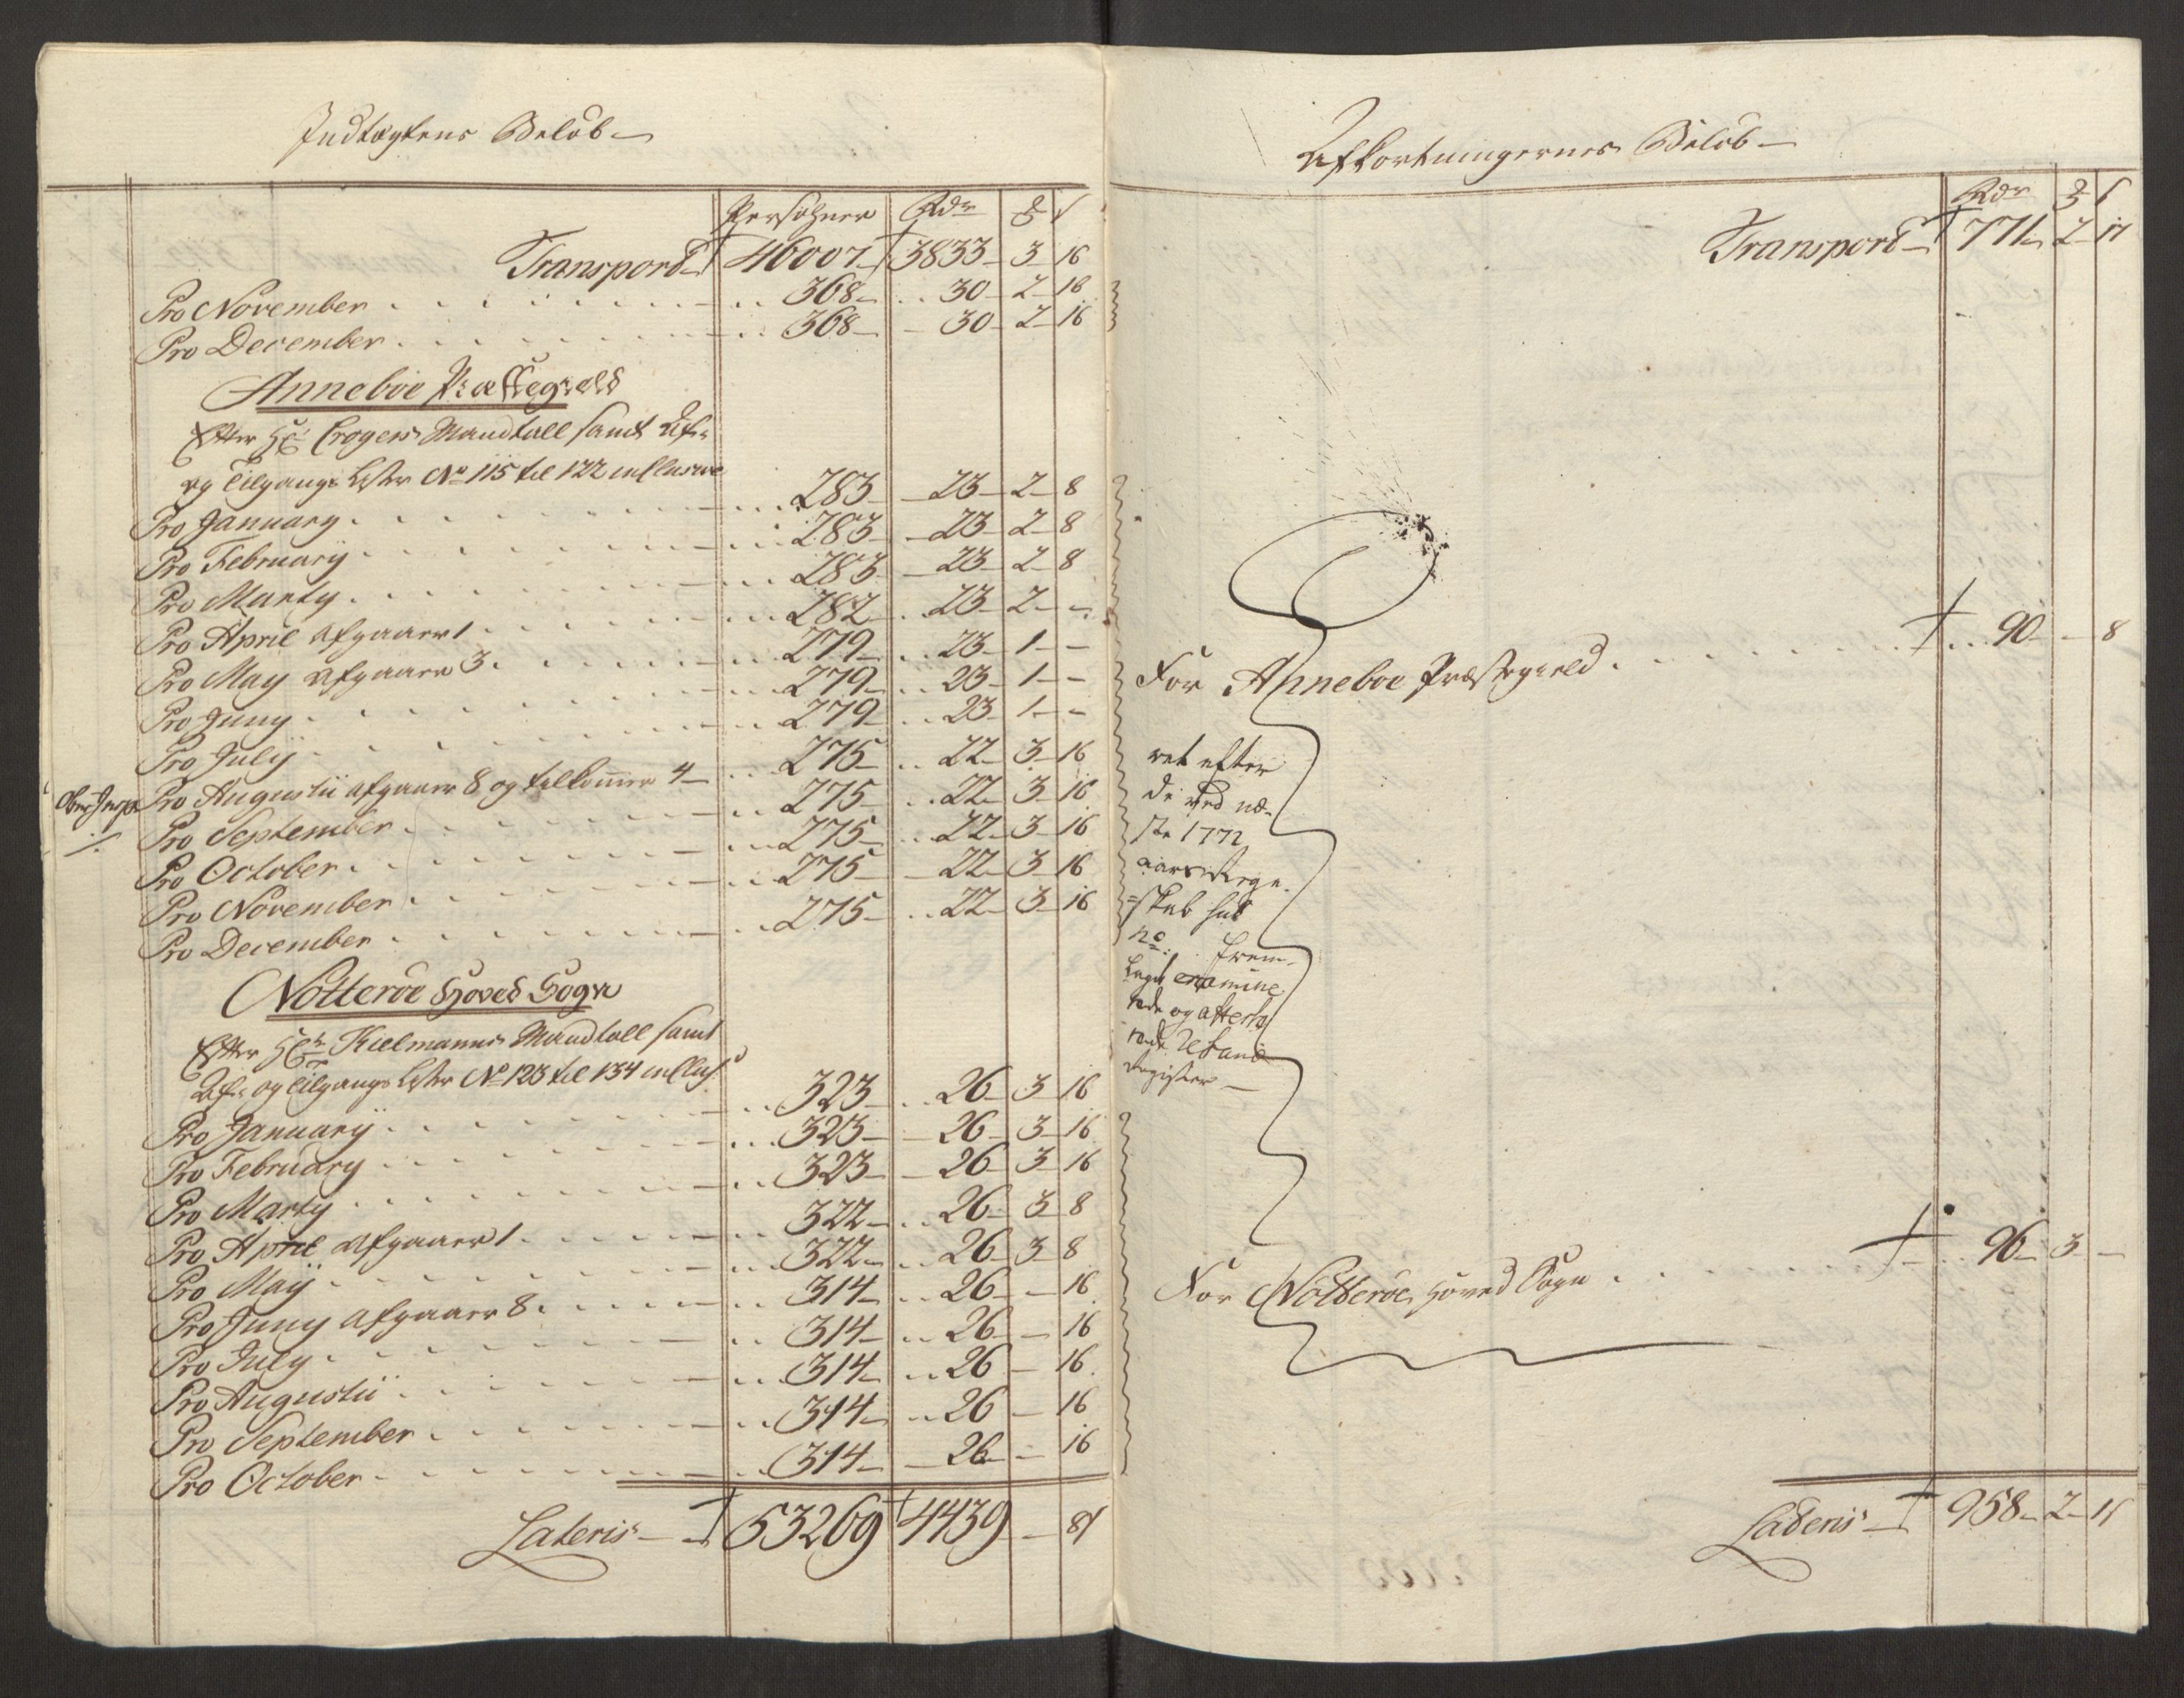 Indtægtens Beløb
Persohner Rdr ß
Transport 46007 3833 3 16
Pro November 368 30 2 16
Pro December 368 30 2 16
Anneboe Præstegield
Efter Hr Crogers Mandtall samt Af-
og Tilgangs Lister No 115 til 122 inclusive
Pro January 283 23 2 8
Pro February 283 23 2 8
Pro Marty 283 23 2 8
Pro April afgaaer 1 282 23 2 -
Pro May afgaaer 3 279 23 1 -
Pro Juny 279 23 1 -
Pro July 279 23 1 -
Pro Augustii afgaaer 8 og tilkommer 4 275 22 3 16
Pro September 275 22 3 16
Pro October 275 22 3 16
Pro November 275 22 3 16
Pro December 275 22 3 16
Nötteröe Hoved Sogn
Efter Hr Kielmanns Mandtall samt
Af- og Tilgangs Lister No 123 til 134 inclus:
Pro January 323 26 3 16
Pro February 323 26 3 16
Pro Marty 323 26 3 16
Pro April afgaaer 1 322 26 3 8
Pro May 322 26 3 8
Pro Juny afgaaer 8 314 26 - 16
Pro July 314 26 - 16
Pro Augustii 314 26 - 16
Pro September 314 26 - 16
Pro October 314 26 - 16
Lateris 53269 4439 - 8
Afkortningernes Beløb
Rdr ß
Transport 771 2 17
For Anneboe Præstegield 90 - 8
ret efter
de ved næ-
ste 1772
aars Regn-
skab sub
No: frem-
lagde examine
rede og atteste
rede Restanse
Register
For Nötteröe Hoved Sogn 96 3 -
Lateris 958 2